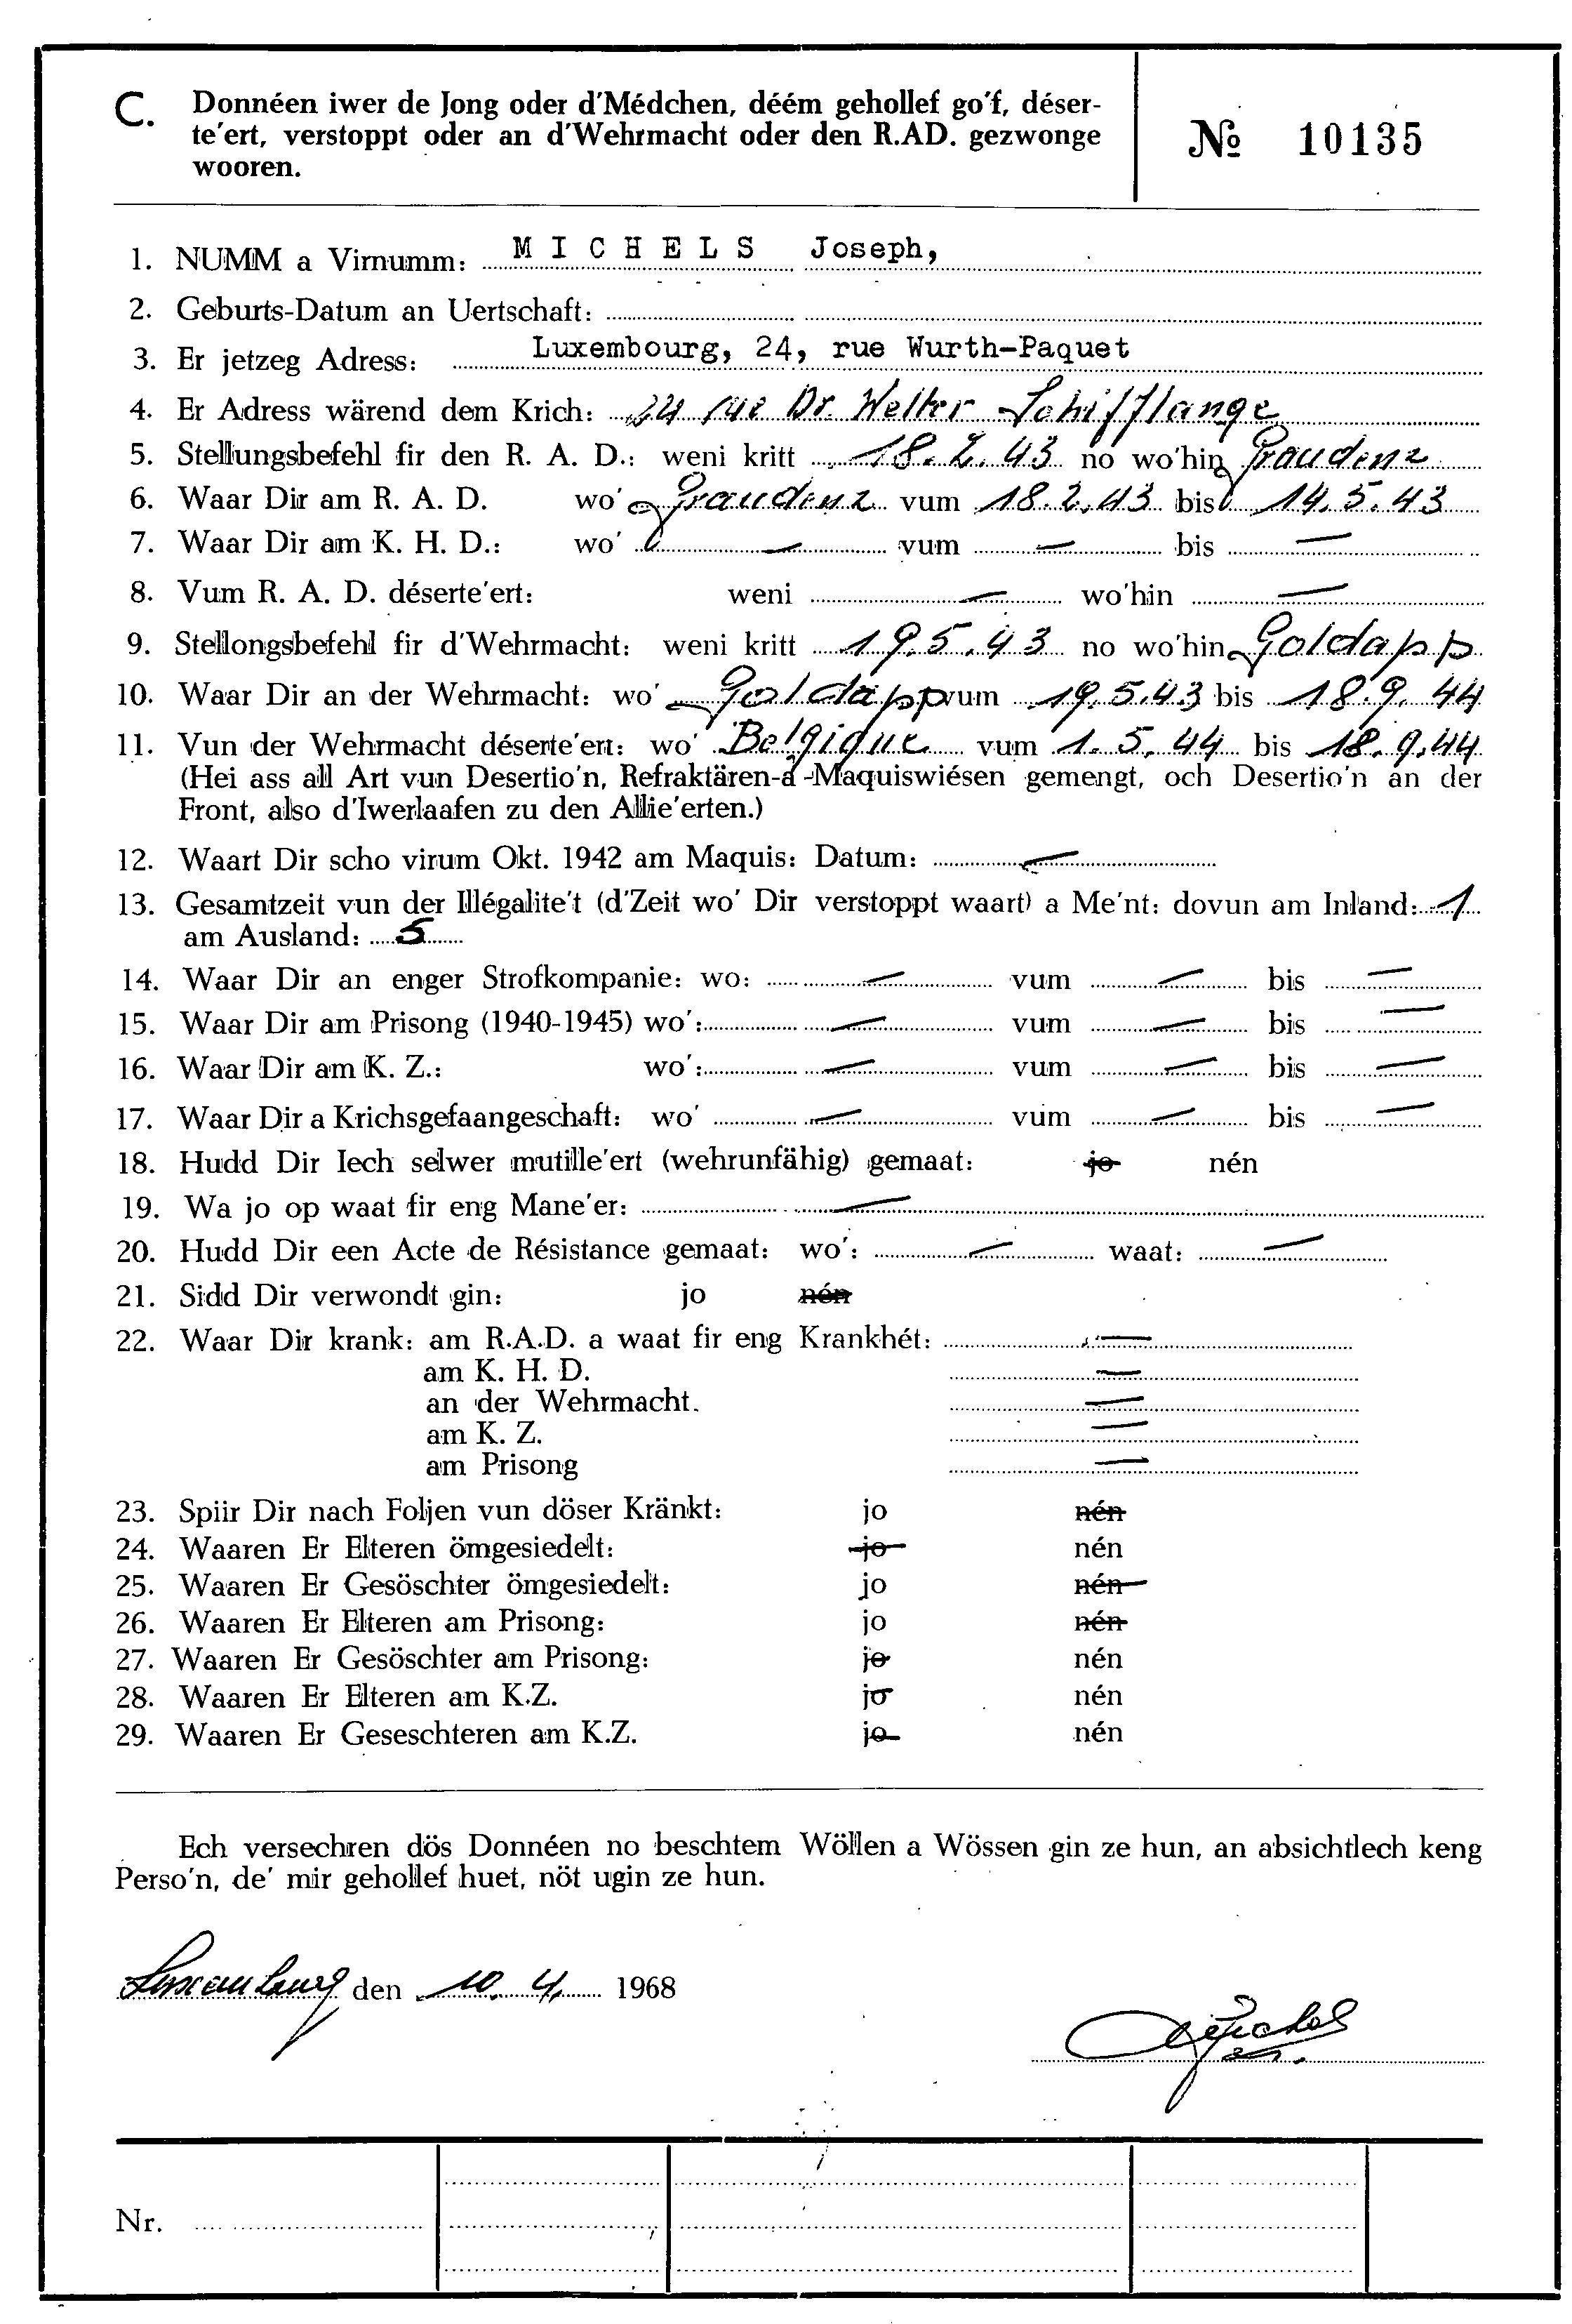 C. Donnéen iwer de Jong oder d'Médchen, déém gehollef go'f, déser-
te'ert, verstoppt oder an d'Wehrmacht oder den R.AD. gezwonge
wooren.
№ 10135
1. NUMM a Virnumm: MICHELS Joseph,
2. Geburts-Datum an Uertschaft:
3. Er jetzeg Adress: Luxembourg, 24, rue Wurth-Paquet
4. Er Adress wärend dem Krich: 24 rue Dr. Welter Schifflange
5. Stellungsbefehl fir den R. A. D.: weni kritt 18.2.43 no wo'hin Graudenz
6. Waar Dir am R. A. D. wo' Graudenz vum 18.2.43 bis 14.5.43
7. Waar Dir am K. H. D.: wo' — vum — bis —
8. Vum R. A. D. déserte'ert: weni — wo'hin —
9. Stellongsbefehl fir d'Wehrmacht: weni kritt 19.5.43 no wo'hin Goldapp
10. Waar Dir an der Wehrmacht: wo' Goldapp vum 19.5.43 bis 18.9.44
11. Vun der Wehrmacht déserte'ert: wo' Belgique vum 1.5.44 bis 18.9.44
(Hei ass all Art vun Desertio'n, Refraktären-a-Maquiswiésen gemengt, och Desertio'n an der
Front, also d'Iwerlaafen zu den Allie'erten.)
12. Waart Dir scho virum Okt. 1942 am Maquis: Datum: —
13. Gesamtzeit vun der Illégalite't (d'Zeit wo' Dir verstoppt waart) a Me'nt: dovun am Inland: 1
am Ausland: 5
14. Waar Dir an enger Strofkompanie: wo: — vum — bis —
15. Waar Dir am Prisong (1940-1945) wo': — vum — bis —
16. Waar Dir am K. Z.: wo': — vum — bis —
17. Waar Dir a Krichsgefaangeschaft: wo' — vum — bis —
18. Hudd Dir Iech selwer mutille'ert (wehrunfähig) gemaat: jo nén
19. Wa jo op waat fir eng Mane'er: —
20. Hudd Dir een Acte de Résistance gemaat: wo': — waat: —
21. Sidd Dir verwondt gin: jo nén
22. Waar Dir krank: am R.A.D. a waat fir eng Krankhét: —
am K. H. D. —
an der Wehrmacht. —
am K. Z. —
am Prisong —
23. Spiir Dir nach Foljen vun döser Kränkt: jo nén
24. Waaren Er Elteren ömgesiedelt: jo nén
25. Waaren Er Gesöschter ömgesiedelt: jo nén
26. Waaren Er Elteren am Prisong: jo nén
27. Waaren Er Gesöschter am Prisong: jo nén
28. Waaren Er Elteren am K.Z. jo nén
29. Waaren Er Geseschteren am K.Z. jo nén
Ech versechren dös Donnéen no beschtem Wöllen a Wössen gin ze hun, an absichtlech keng
Perso'n, de' mir gehollef huet, nöt ugin ze hun.
Luxembourg den 10. 4. 1968
Nr.